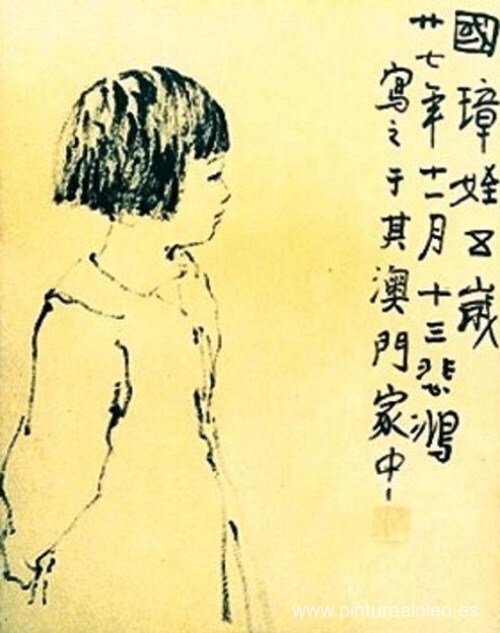 國璋姪五歲
廿七年十一月十三悲鴻
寫之于其澳門家中
www.pinturaaloleo.es